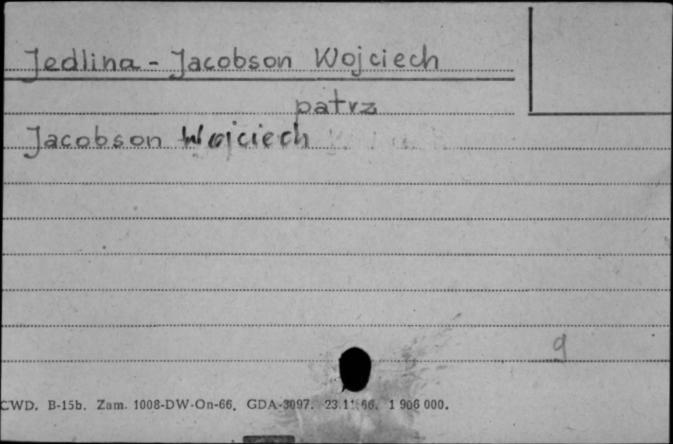 Jedlina - Jacobson Wojciech
patrz
Jacobson Wojciech
g
CWD. B-15b. Zam. 1008-DW-On-66. GDA-3097. 23.11.66. 1 906 000.